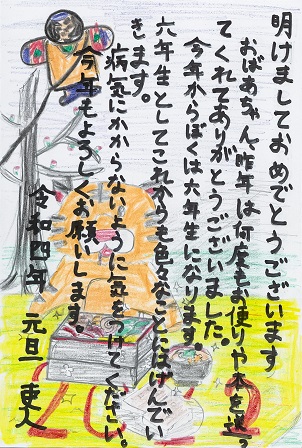 明けましておめでとうございます
おばあちゃん昨年は何度もお便りや本を送っ
てくれてありがとうございました。
今年からぼくは六年生になります。
六年生としてこれからも色々なことにはげんでい
きます。
病気にかからないように気をつけてください。
今年もよろしくお願いします。
令和四年 元旦